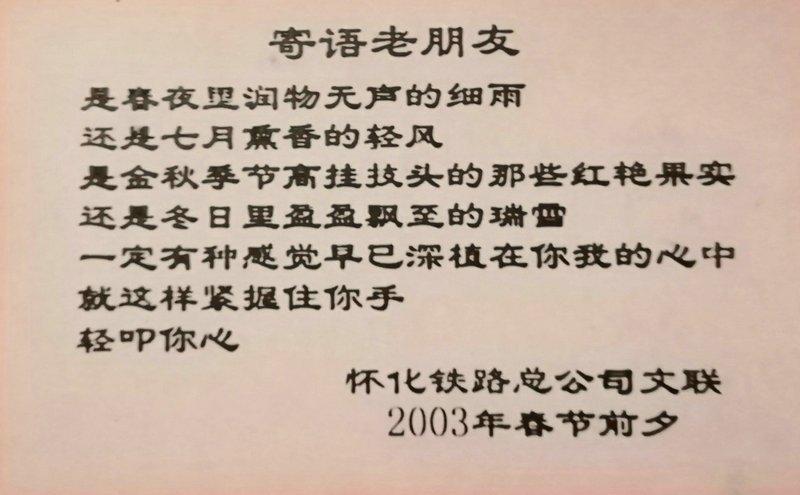 寄语老朋友
是春夜里润物无声的细雨
还是七月熏香的轻风
是金秋季节高挂技头的那些红艳果实
还是冬日里盈盈飘至的瑞雪
一定有种感觉早已深植在你我的心中
就这样紧握住你手
轻叩你心
怀化铁路总公司文联
2003年春节前夕